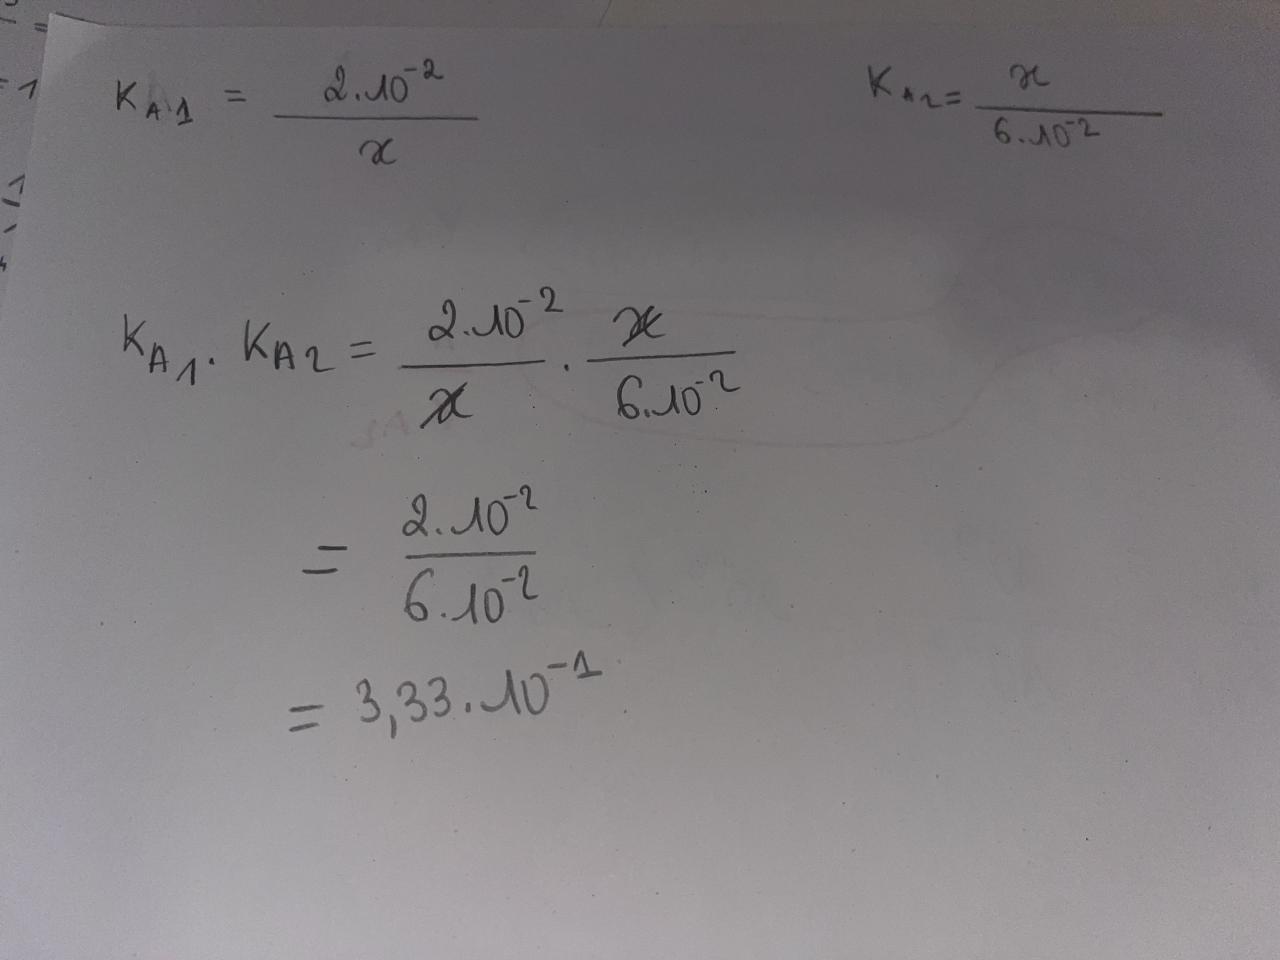 K_A1 = 2.10^-2 / x
K_A2 = x / 6.10^-2
K_A1 . K_A2 = 2.10^-2 / x . x / 6.10^-2
= 2.10^-2 / 6.10^-2
= 3,33.10^-1